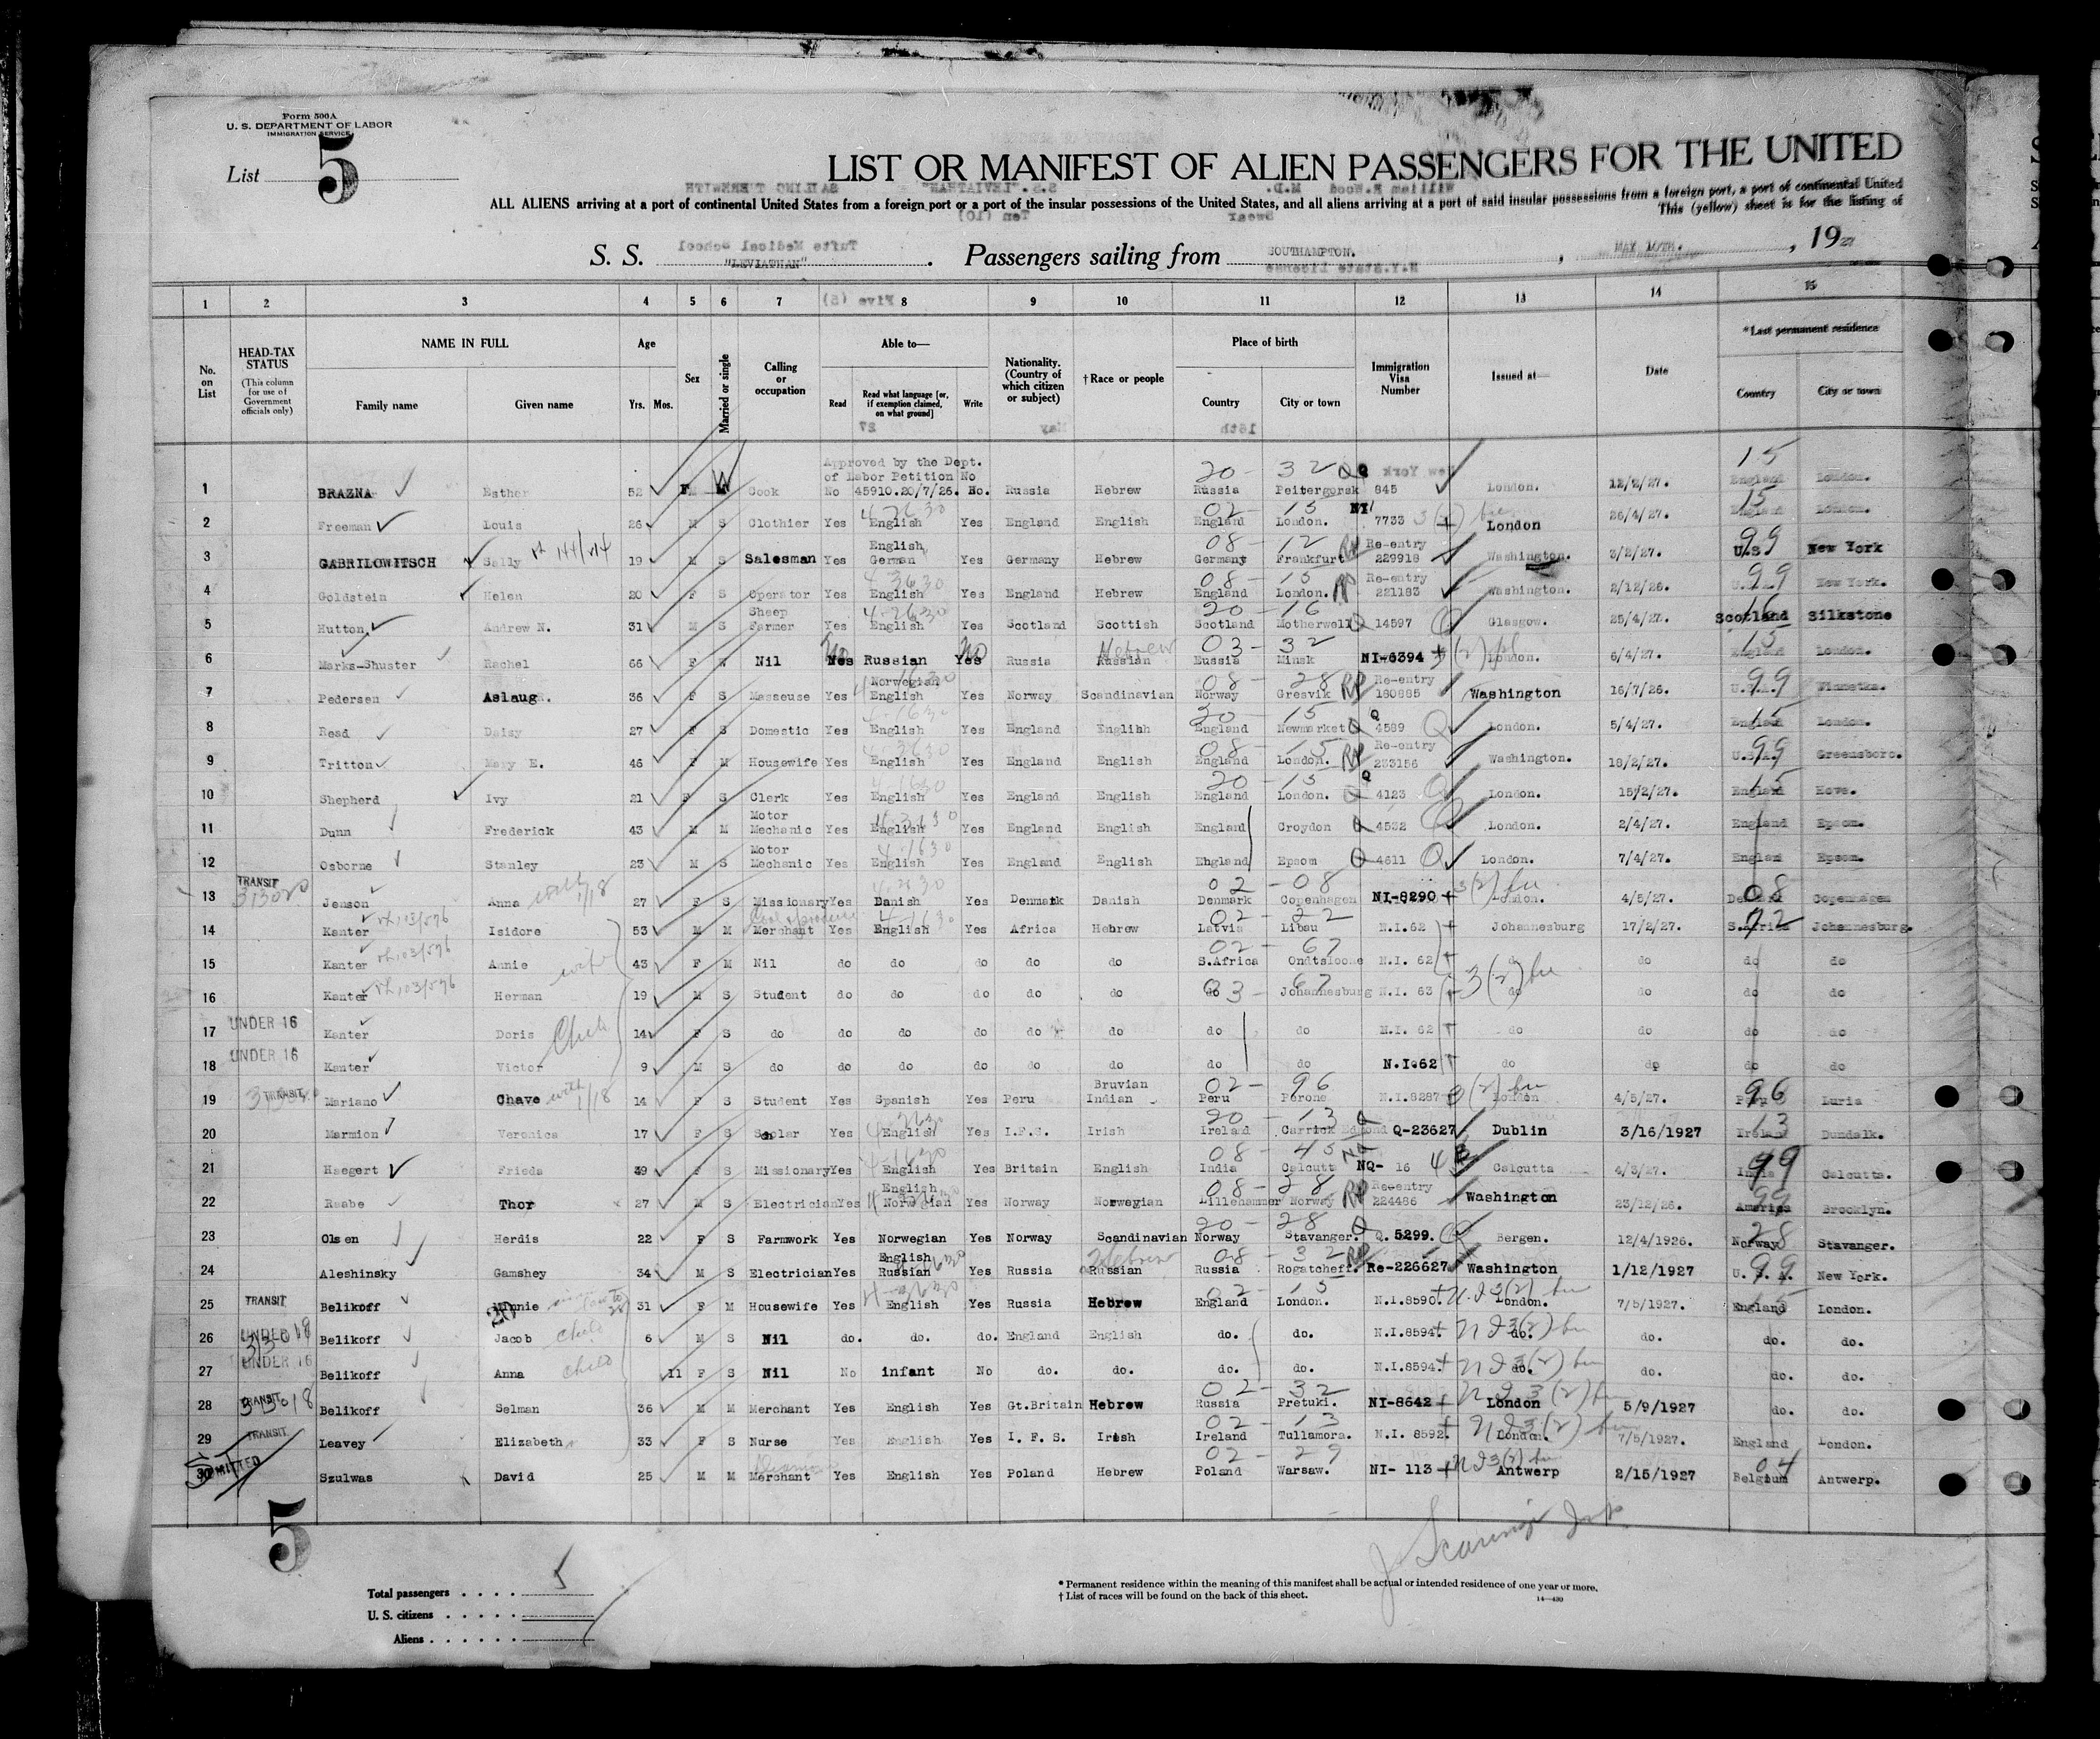 Form 500A
U. S. DEPARTMENT OF LABOR
IMMIGRATION SERVICE
List 5
LIST OR MANIFEST OF ALIEN PASSENGERS FOR THE UNITED
ALL ALIENS arriving at a port of continental United States from a foreign port or a port of the insular possessions of the United States, and all aliens arriving at a port of said insular possessions from a foreign port, a port of continental United
This (yellow) sheet is for the listing of
S. S. "LEVIATHAN" . Passengers sailing from SOUTHAMPTON. , MAY 10TH. , 1927
1 2 3 4 5 6 7 8 9 10 11 12 13 14 15
No. on List
HEAD-TAX STATUS (This column for use of Government officials only)
NAME IN FULL
Family name Given name
Age
Yrs. Mos.
Sex
Married or single
Calling or occupation
Able to—
Read Read what language [or, if exemption claimed, on what ground] Write
Nationality. (Country of which citizen or subject)
†Race or people
Place of birth
Country City or town
Immigration Visa Number
Issued at—
Date
*Last permanent residence
Country City or town
Approved by the Dept.
of Labor Petition No
1 BRAZNA Esther 52 F W Cook No 45910.20/7/26. No. Russia Hebrew Russia Peitergorsk 845 London. 12/2/27. England London.
2 Freeman Louis 26 M S Clothier Yes English Yes England English England London. NI 7733 London 26/4/27. England London.
3 GABRILOWITSCH Sally 19 M S Salesman Yes English German Yes Germany Hebrew Germany Frankfurt Re-entry 229918 Washington. 3/2/27. U.S. New York
4 Goldstein Helen 20 F S Operator Yes English Yes England Hebrew England London. Re-entry 221183 Washington. 2/12/26. New York.
5 Hutton Andrew N. 31 M S Sheep Farmer Yes English Yes Scotland Scottish Scotland Motherwell 14597 Glasgow. 25/4/27. Scotland Silkstone
6 Marks-Shuster Rachel 66 F W Nil No Russian No Russia Hebrew Russia Minsk NI-6394 London. 6/4/27. England London.
7 Pedersen Aslaug. 36 F S Masseuse Yes Norwegian English Yes Norway Scandinavian Norway Gresvik Re-entry 180885 Washington 16/7/26. U.S.A. Winnetka.
8 Read Daisy 27 F S Domestic Yes English Yes England English England Newmarket Q 4589 London. 5/4/27. England London.
9 Tritton Mary E. 46 F M Housewife Yes English Yes England English England London. Re-entry 233156 Washington. 18/2/27. U.S.A. Greensboro.
10 Shepherd Ivy 21 F S Clerk Yes English Yes England English England London. Q 4123 London. 15/2/27. England Hove.
11 Dunn Frederick 43 M M Motor Mechanic Yes English Yes England English England Croydon Q 4532 London. 2/4/27. England Epsom.
12 Osborne Stanley 23 M S Motor Mechanic Yes English Yes England English England Epsom Q 4611 London. 7/4/27. England Epsom.
13 TRANSIT Jenson Anna 27 F S Missionary Yes Danish Yes Denmark Danish Denmark Copenhagen NI-8290 London. 4/5/27. Denmark Copenhagen
14 Kanter Isidore 53 M M Merchant Yes English Yes Africa Hebrew Latvia Libau N.I.62 Johannesburg 17/2/27. S.Africa Johannesburg.
15 Kanter Annie wife 43 F M Nil do do do do do S.Africa Ondtsloone N.I. 62 do do do do
16 Kanter Herman 19 M S Student do do do do do do Johannesburg N.I. 63 do do do do
17 UNDER 16 Kanter Doris 14 F S do do do do do do do do N.I. 62 do do do do
18 UNDER 16 Kanter Victor 9 M S do do do do do do do do N.I.62 do do do do
19 TRANSIT Mariano Chave 14 F S Student Yes Spanish Yes Peru Bruvian Indian Peru Perone N.I.8287 London 4/5/27. Peru Luria
20 Marmion Veronica 17 F S Scholar Yes English Yes I.F.S. Irish Ireland Carrick Edmond Q-23627 Dublin 3/16/1927 Ireland Dundalk.
21 Haegert Frieda 49 F S Missionary Yes English Yes Britain English India Calcutt NQ- 16 Calcutta 4/3/27. India Calcutta.
22 Raabe Thor 27 M S Electrician Yes English Norwegian Yes Norway Norwegian Lillehammer Norway Re-entry 224486 Washington 23/12/26. America Brooklyn.
23 Olsen Herdis 22 F S Farmwork Yes Norwegian Yes Norway Scandinavian Norway Stavanger. Q. 5299. Bergen. 12/4/1926. Norway Stavanger.
24 Aleshinsky Gamshey 34 M S Electrician Yes English Russian Yes Russia Hebrew Russian Russia Rogatcheff. Re-226627 Washington 1/12/1927 U. S. A. New York.
25 TRANSIT Belikoff Minnie 31 F M Housewife Yes English Yes Russia Hebrew England London. N.I.8590. London. 7/5/1927. England London.
26 UNDER 16 Belikoff Jacob child 6 M S Nil do. do. do. England English do. do. N.I.8594. do. do. do. do.
27 UNDER 16 Belikoff Anna child 11 F S Nil No infant No do. do. do. do. N.I.8594. do. do. do. do.
28 TRANSIT Belikoff Selman 36 M M Merchant Yes English Yes Gt.Britain Hebrew Russia Pretuki. NI-8642 London 5/9/1927 do. do.
29 TRANSIT Leavey Elizabeth 33 F S Nurse Yes English Yes I. F. S. Irish Ireland Tullamora. N.I. 8592. London. 7/5/1927. England London.
30 Szulwas David 25 M M Merchant Yes English Yes Poland Hebrew Poland Warsaw. NI- 113 Antwerp 2/15/1927 Belgium Antwerp.
5
Total passengers . . . .
U. S. citizens . . . . .
Aliens . . . . . .
* Permanent residence within the meaning of this manifest shall be actual or intended residence of one year or more.
† List of races will be found on the back of this sheet.
14—430